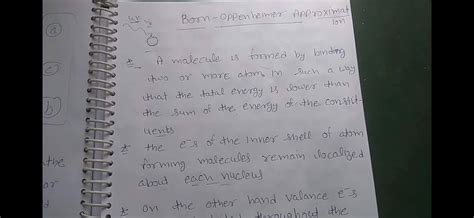 Born-Oppenhemer Approximat
ion
* A molecule is formed by binding
two or more atoms in such a way
that the total energy is lower than
the sum of the energy of the constit-
uents
* the e⁻s of the inner shell of atom
forming molecules remain localized
about each nucleus
* on the other hand valance e⁻s
throughout the
(a)
(c)
(b)
the
or